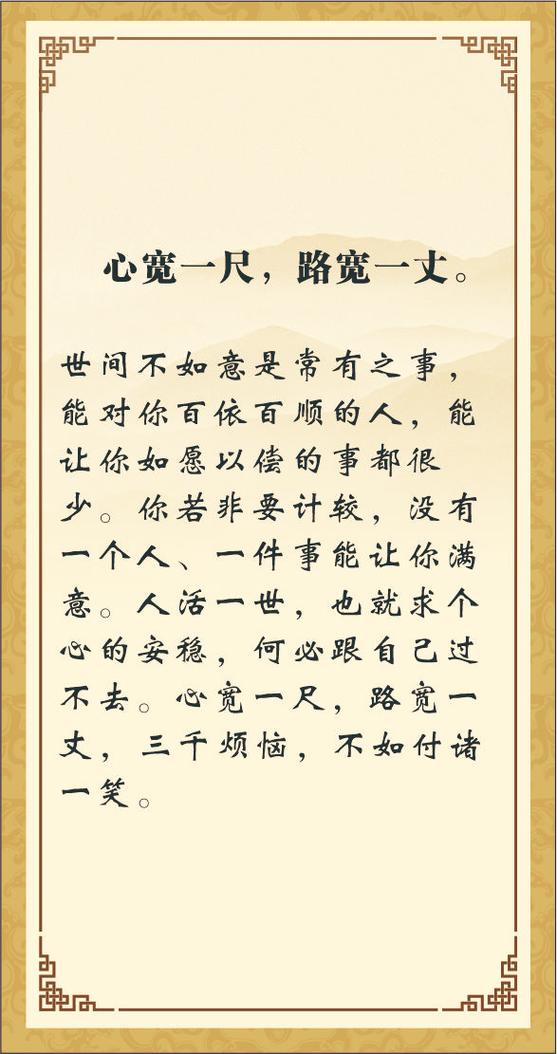 心宽一尺，路宽一丈。
世间不如意是常有之事，
能对你百依百顺的人，能
让你如愿以偿的事都很
少。你若非要计较，没有
一个人、一件事能让你满
意。人活一世，也就求个
心的安稳，何必跟自己过
不去。心宽一尺，路宽一
丈，三千烦恼，不如付诸
一笑。